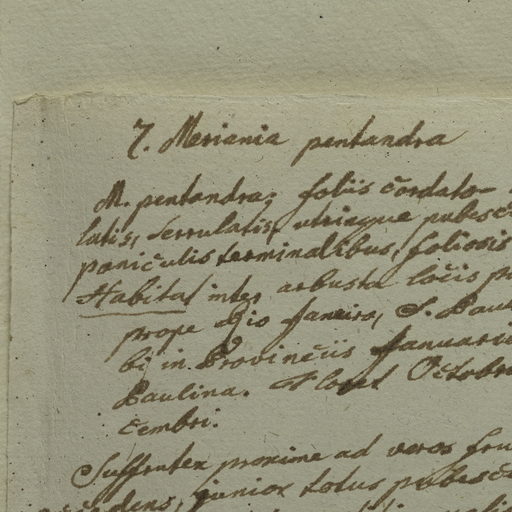 7. Meriania pentandra
M. pentandra; foliis cordato-
latis, serrulatis, utrinque pubesc
paniculis terminalibus, foliosis
Habitat inter arbusta locis pr
prope Rio Janeiro, S. Paul
bi in Provinciis Januari
Paulina. Floret Octobr
cembri.
Suffrutex proxime ad veros fru
dens, junior totus pubesc